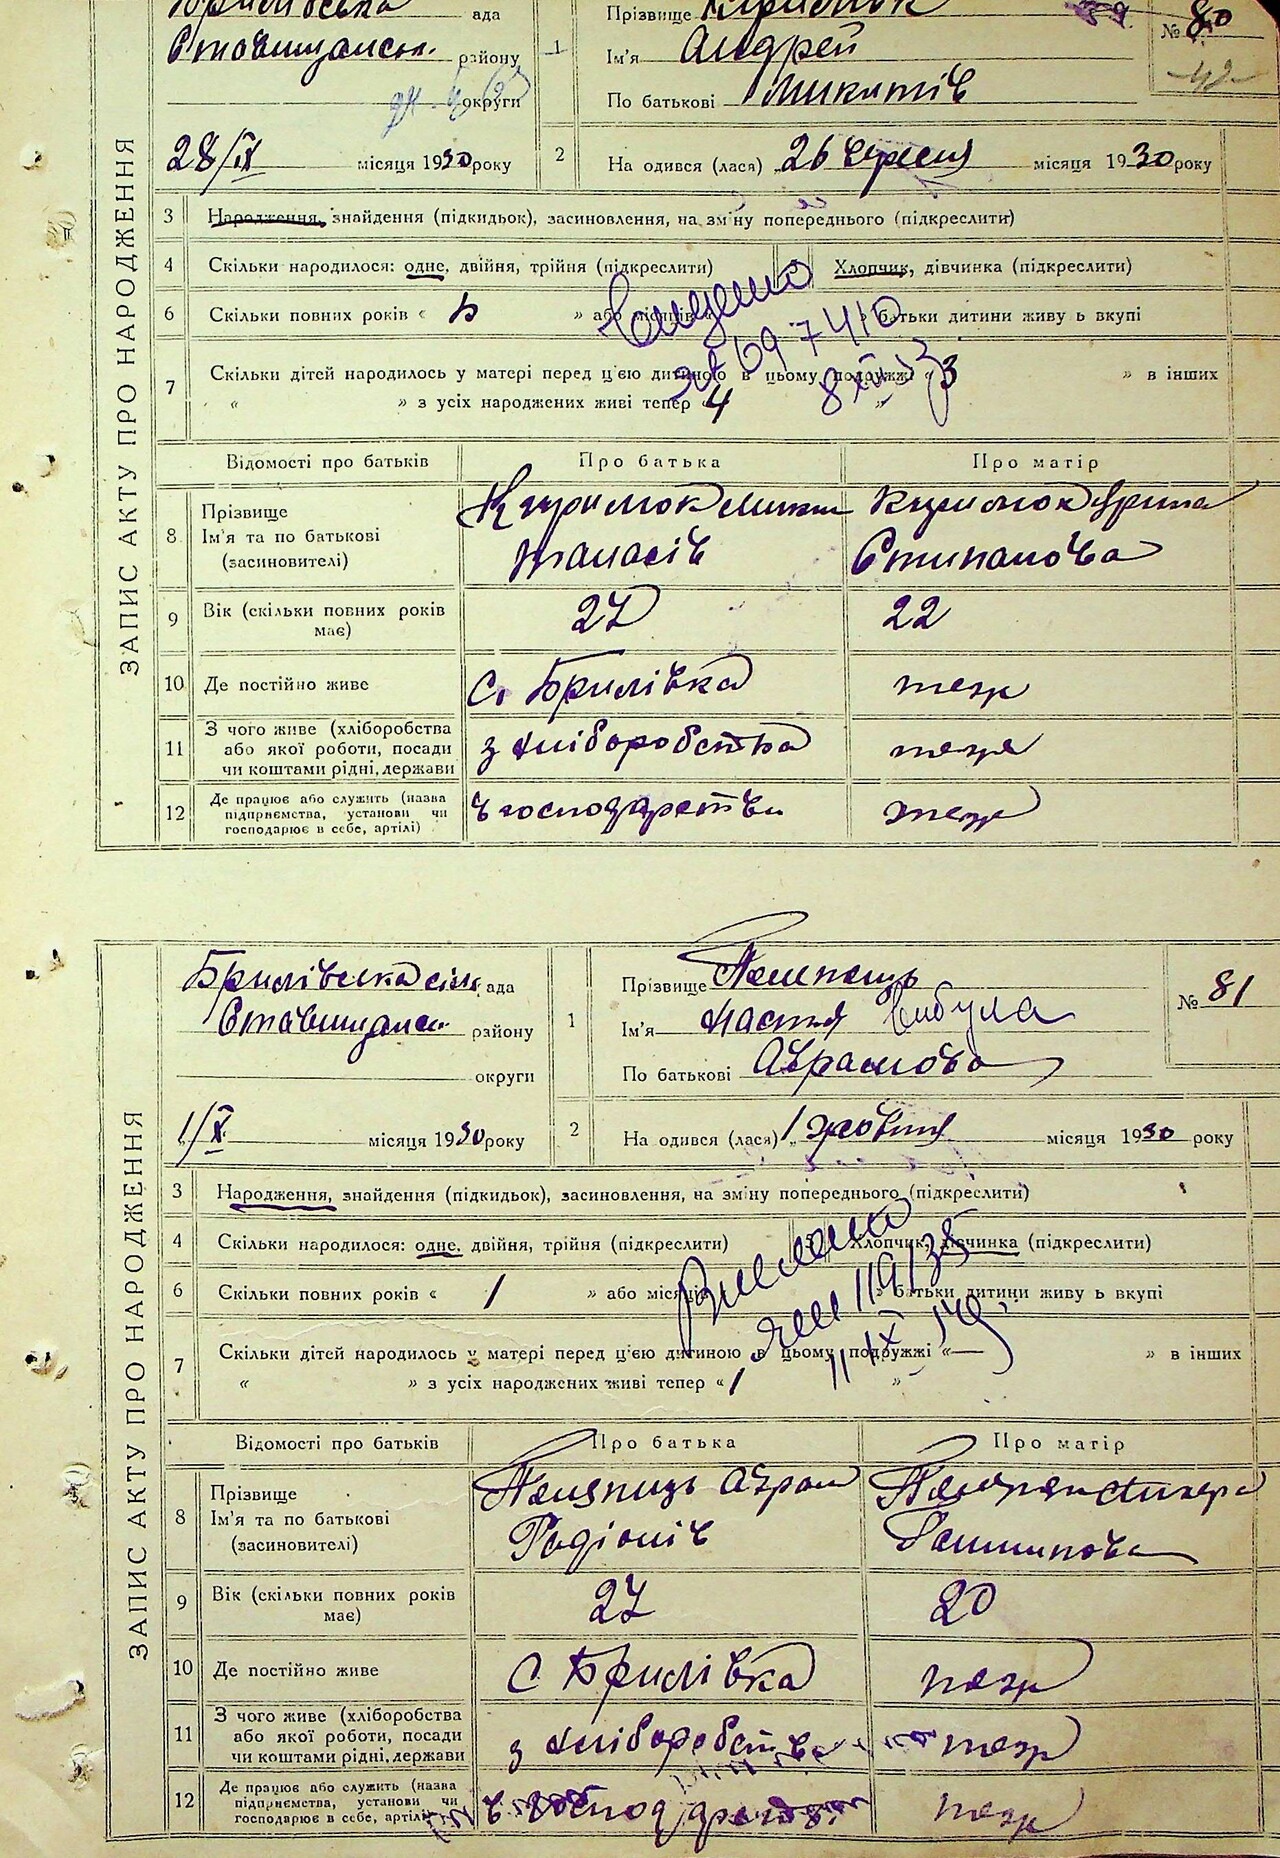 ЗАПИС АКТУ ПРО НАРОДЖЕННЯ
ада
Ставищанськ. району
округи
28/IX місяця 1930 року
1
Прізвище
Ім'я Андрей
По батькові Микитів
№ 80
2
На одився (лася) „26 вересня місяця 1930 року
3 Народження, знайдення (підкидьок), засиновлення, на зміну попереднього (підкреслити)
4 Скільки народилося: одне, двійня, трійня (підкреслити) Хлопчик, дівчинка (підкреслити)
6 Скільки повних років « » або місяців батьки дитини живу ь вкупі
7 Скільки дітей народилось у матері перед ц'єю дитиною в цьому подружжі « 3 » в інших
« » з усіх народжених живі тепер « 4 »
Відомості про батьків Про батька Про матір
8 Прізвище
Ім'я та по батькові
(засиновителі)
Танасів
Степанова
9 Вік (скільки повних років має) 27 22
10 Де постійно живе с. Брилівка теж
11 З чого живе (хліборобства
або якої роботи, посади
чи коштами рідні, держави
з хліборобства теж
12 Де працює або служить (назва
підприємства, установи чи
господарює в себе, артілі)
в господарстви теж
ЗАПИС АКТУ ПРО НАРОДЖЕННЯ
Брилівська сіль ада
Ставищансь району
округи
1/X місяця 1930 року
1
Прізвище
Ім'я Настя
По батькові Аврамова
№ 81
2
На одився (лася) „1 жовтня місяця 1930 року
3 Народження, знайдення (підкидьок), засиновлення, на зміну попереднього (підкреслити)
4 Скільки народилося: одне, двійня, трійня (підкреслити) Хлопчик, дівчинка (підкреслити)
6 Скільки повних років « 1 » або місяців батьки дитини живу ь вкупі
7 Скільки дітей народилось у матері перед ц'єю дитиною в цьому подружжі «— » в інших
« » з усіх народжених живі тепер « 1 »
Відомості про батьків Про батька Про матір
8 Прізвище
Ім'я та по батькові
(засиновителі)
Аврам
Родіонів
9 Вік (скільки повних років має) 27 20
10 Де постійно живе с. Брилівка теж
11 З чого живе (хліборобства
або якої роботи, посади
чи коштами рідні, держави
з хліборобства теж
12 Де працює або служить (назва
підприємства, установи чи
господарює в себе, артілі)
в теж